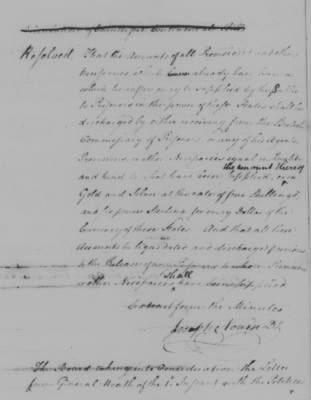 Circulation of Counterfeit Continental Bills
Resolved That the Amounts of all Provisions and other
Necessaries, which have already have been or
which hereafter may be supplied by the States
to Prisoners in the power of these States shall be
discharged by either receiving from the British
Commissary of Prisoners, or any of his Agents
Provisions or other Necessaries equal in Quality
and kind to what have been supplied, or the amount thereof in
Gold and Silver at the rate of four Shillings
and Six pence Sterling for every Dollar of the
Currency of these States. And that all these
Accounts be liquidated and discharged previous
to the Release of any Prisoners to whom Provisions
or other Necessaries shall have been supplied
Extract from the Minutes
Joseph Nourse
The Board taking into Consideration the Letter
from General Heath of the Instant with the Petition